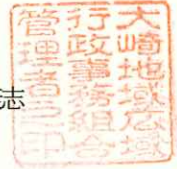 大崎地域広域
行政事務組合
管理者之印
志